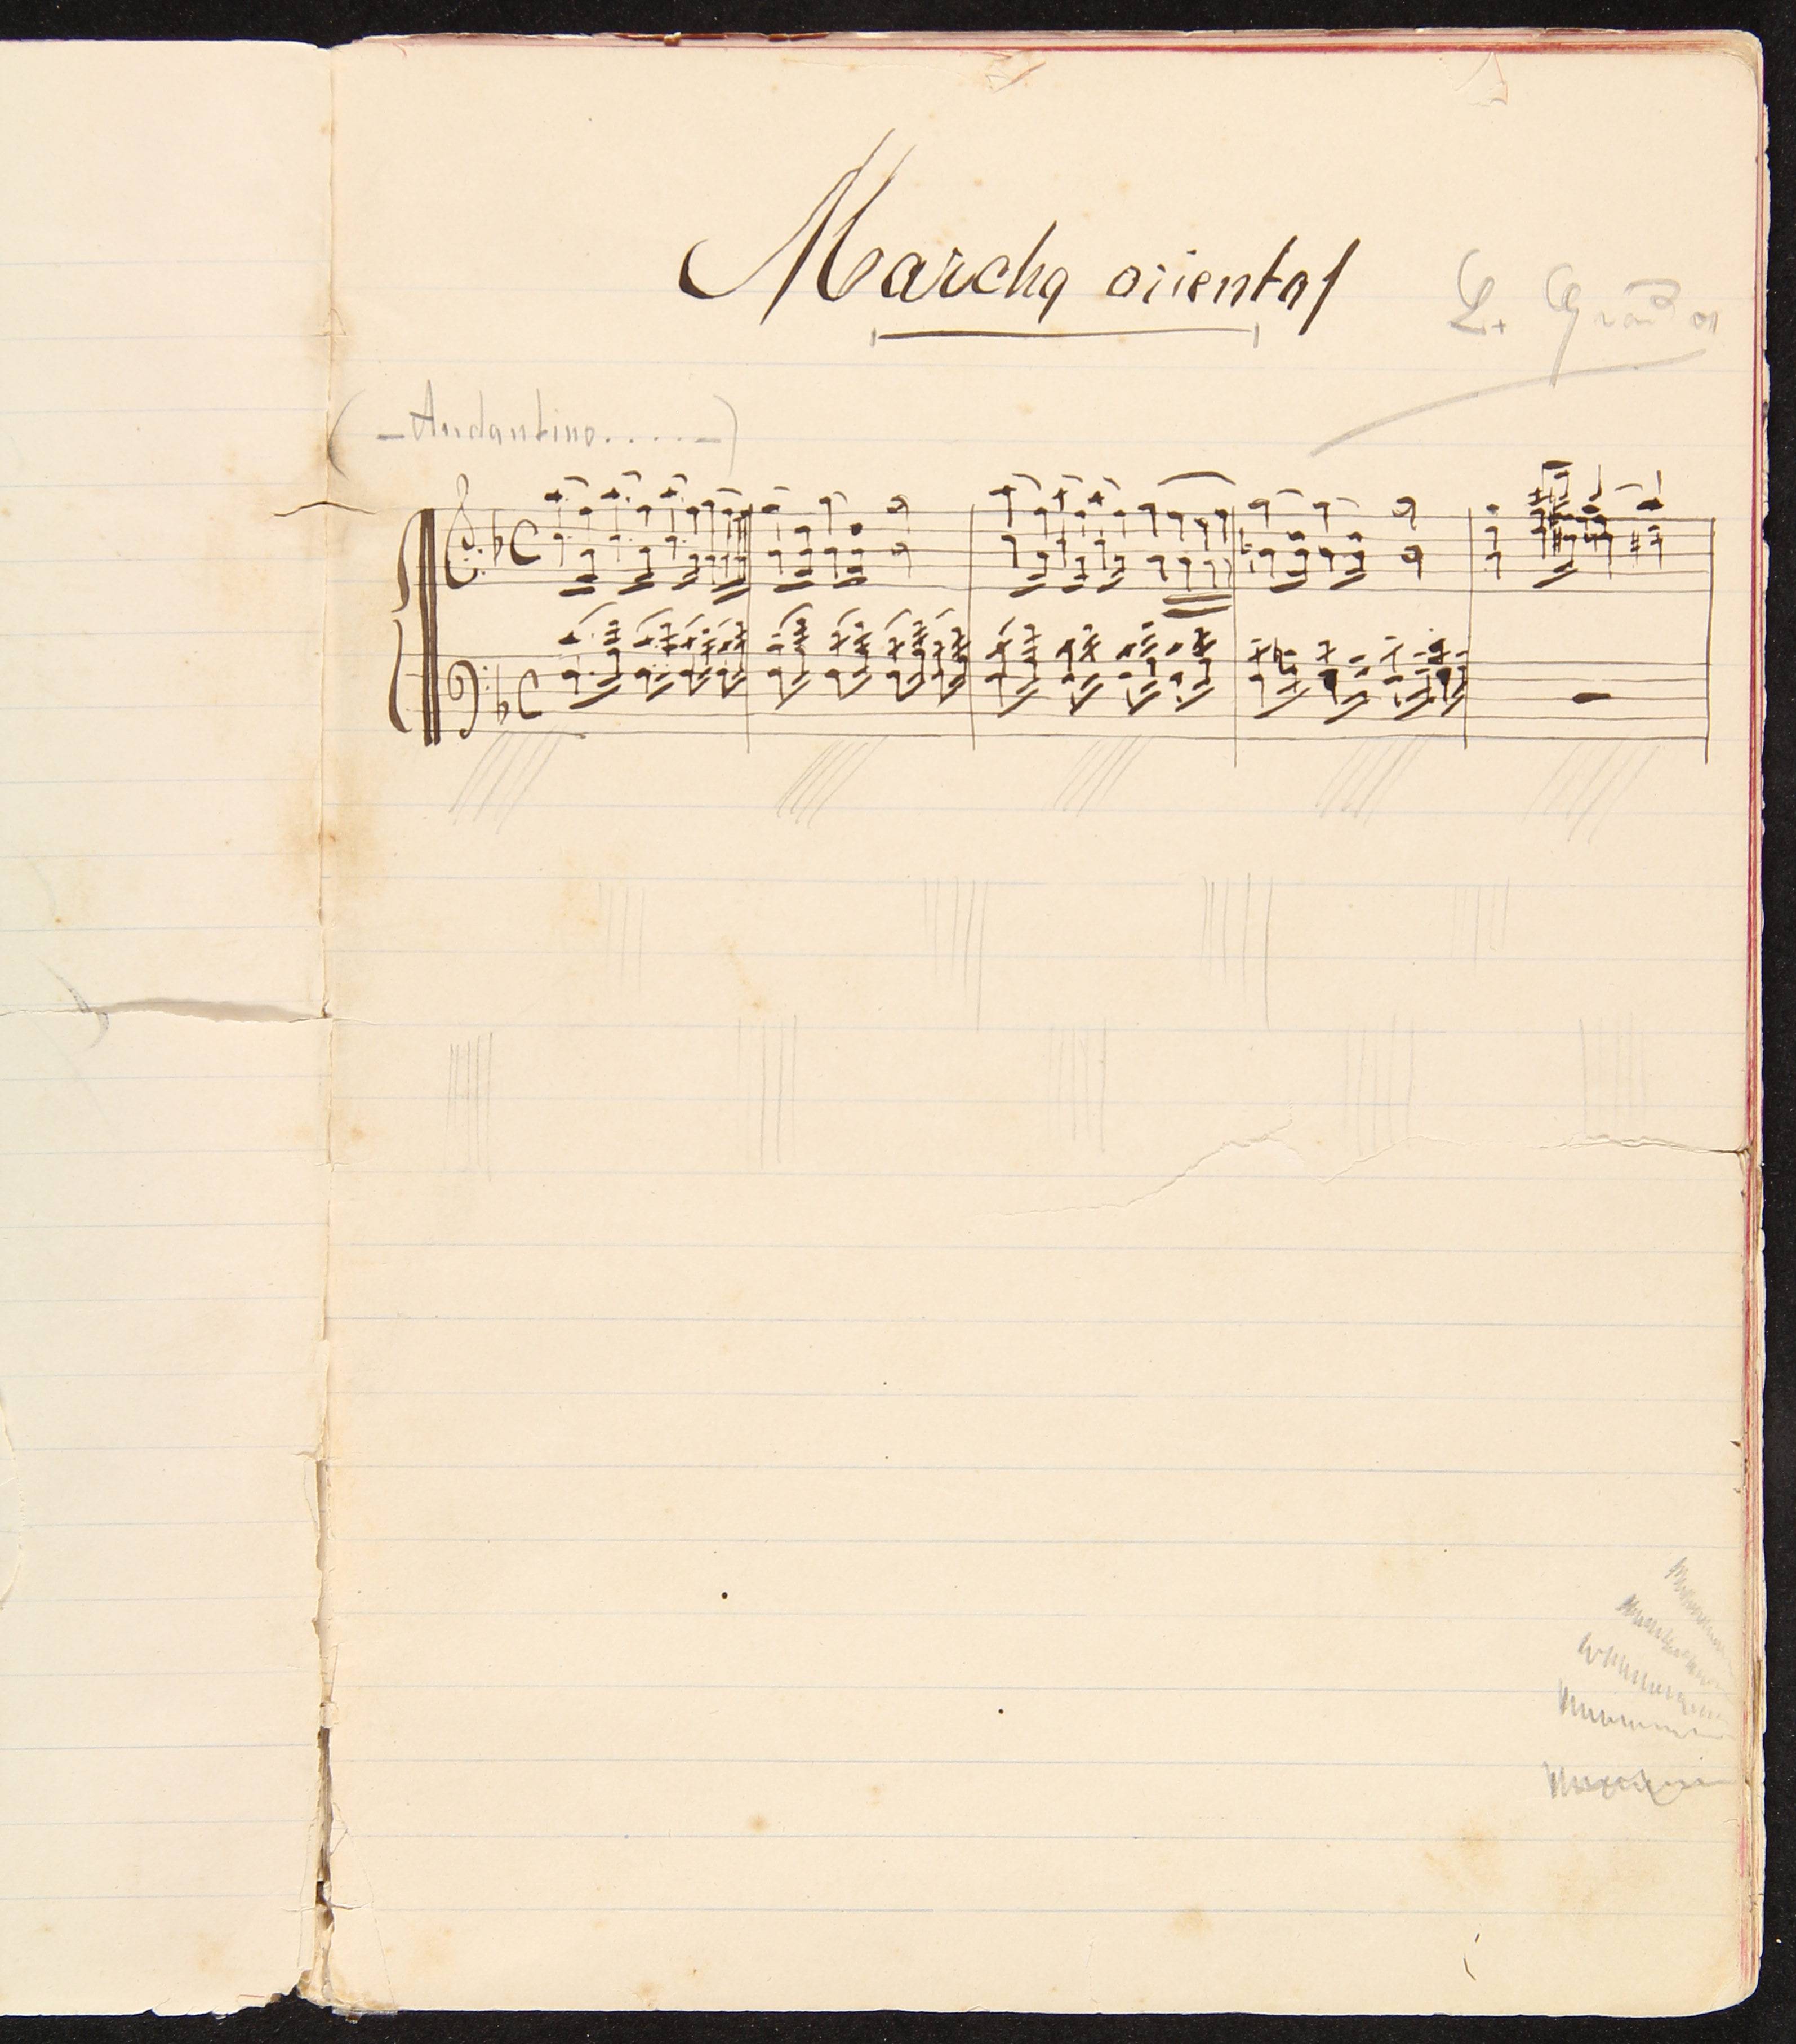 Marcha oriental
E. Granados
(-Andantino.....-)